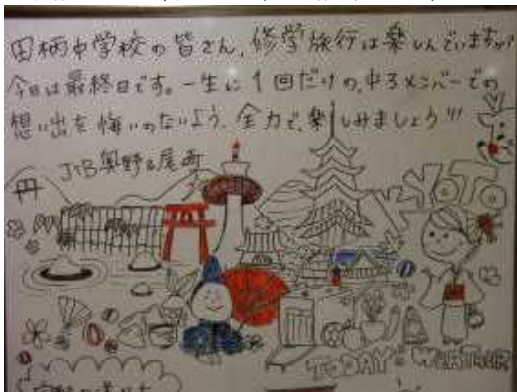 田柄中学校の皆さん、修学旅行は楽しんでいますか?
今日は最終日です。一生に1回だけの、中3メンバーでの
想い出を悔いのないよう、全力で、楽しみましょう!!!
JTB奥野&尾西
KYOTO
TODAY'S WEATHER